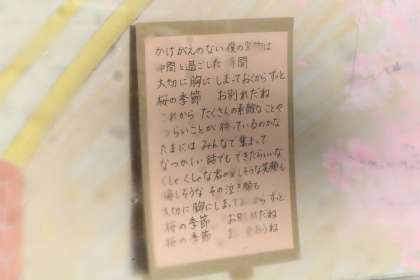 かけがえのない 僕の宝物は
仲間と過ごした 時間
大切に胸に しまっておくから ずっと
桜の季節 お別れだね
これから たくさんの素敵なことや
つらいことが 待っているのかな
たまには みんなで 集まって
なつかしい話でも できたらいいな
くしゃくしゃな君が しそうな笑顔も
悔しそうな その泣き顔も
大切に胸にしまって から ずっと
桜の季節 お別れだね
桜の季節 うね